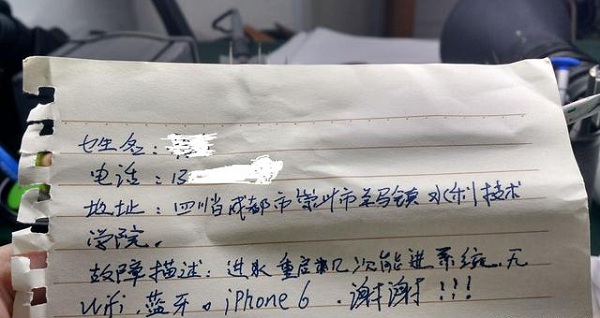 姓名:
电话:13
地址:四川省成都市崇州市羊马镇水利技术
学院。
故障描述:进水重启几次能进系统.无
wifi.蓝牙。iPhone 6.谢谢!!!